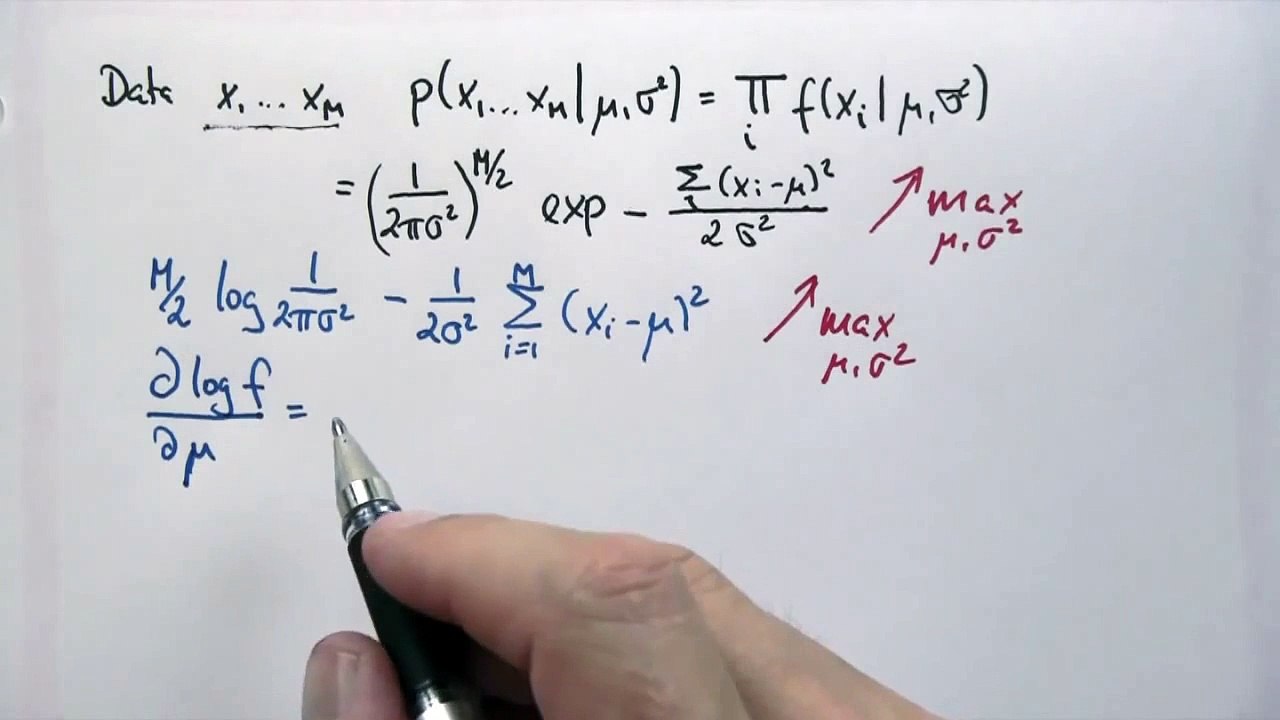 Data x₁ ... x_M p(x₁ ... x_M | μ, σ²) = ∏_i f(x_i | μ, σ²)
= (1/2πσ²)^M/2 exp − Σ_i (x_i − μ)² / 2σ² ↗ max μ, σ²
M/2 log 1/2πσ² − 1/2σ² Σ_{i=1}^M (x_i − μ)² ↗ max μ, σ²
∂ log f / ∂μ =